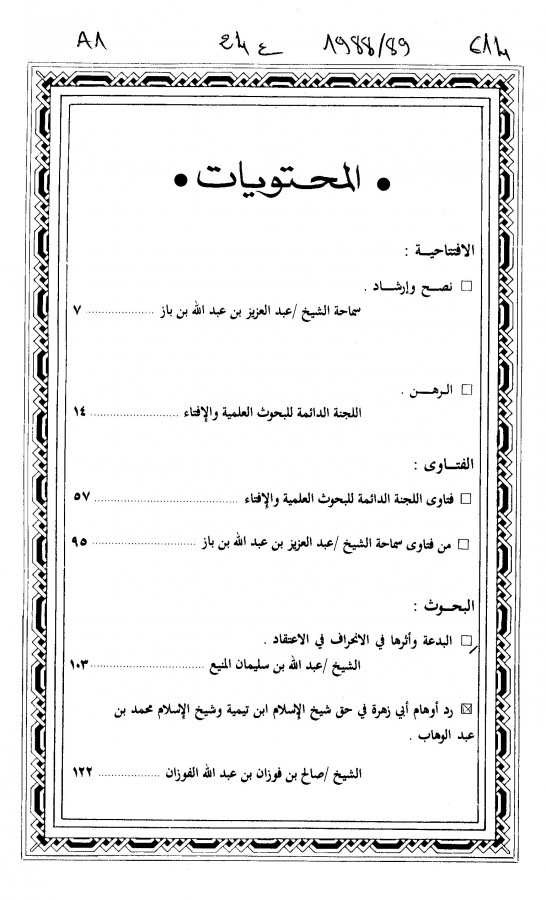 A1 24 ع 1988/89 614
• المحتويات •
الافتتاحية :
□ نصح وإرشاد .
سماحة الشيخ /عبد العزيز بن عبد الله بن باز ..................... ٧
□ الرهن .
اللجنة الدائمة للبحوث العلمية والإفتاء ..................... ١٤
الفتاوى :
□ فتاوى اللجنة الدائمة للبحوث العلمية والإفتاء ..................... ٥٧
□ من فتاوى سماحة الشيخ /عبد العزيز بن عبد الله بن باز ..................... ٩٥
البحوث :
□ البدعة وأثرها في الانحراف في الاعتقاد .
الشيخ /عبد الله بن سليمان المنيع ..................... ١٠٣
☒ رد أوهام أبي زهرة في حق شيخ الإسلام ابن تيمية وشيخ الإسلام محمد بن
عبد الوهاب .
الشيخ /صالح بن فوزان بن عبد الله الفوزان ..................... ١٢٢